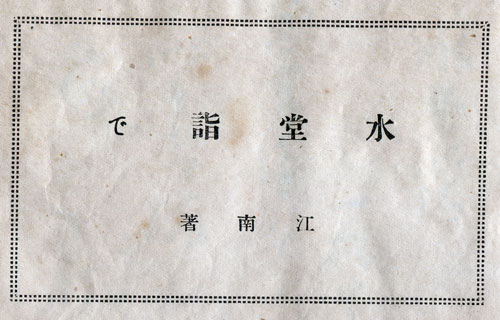 水堂詣で
江南著